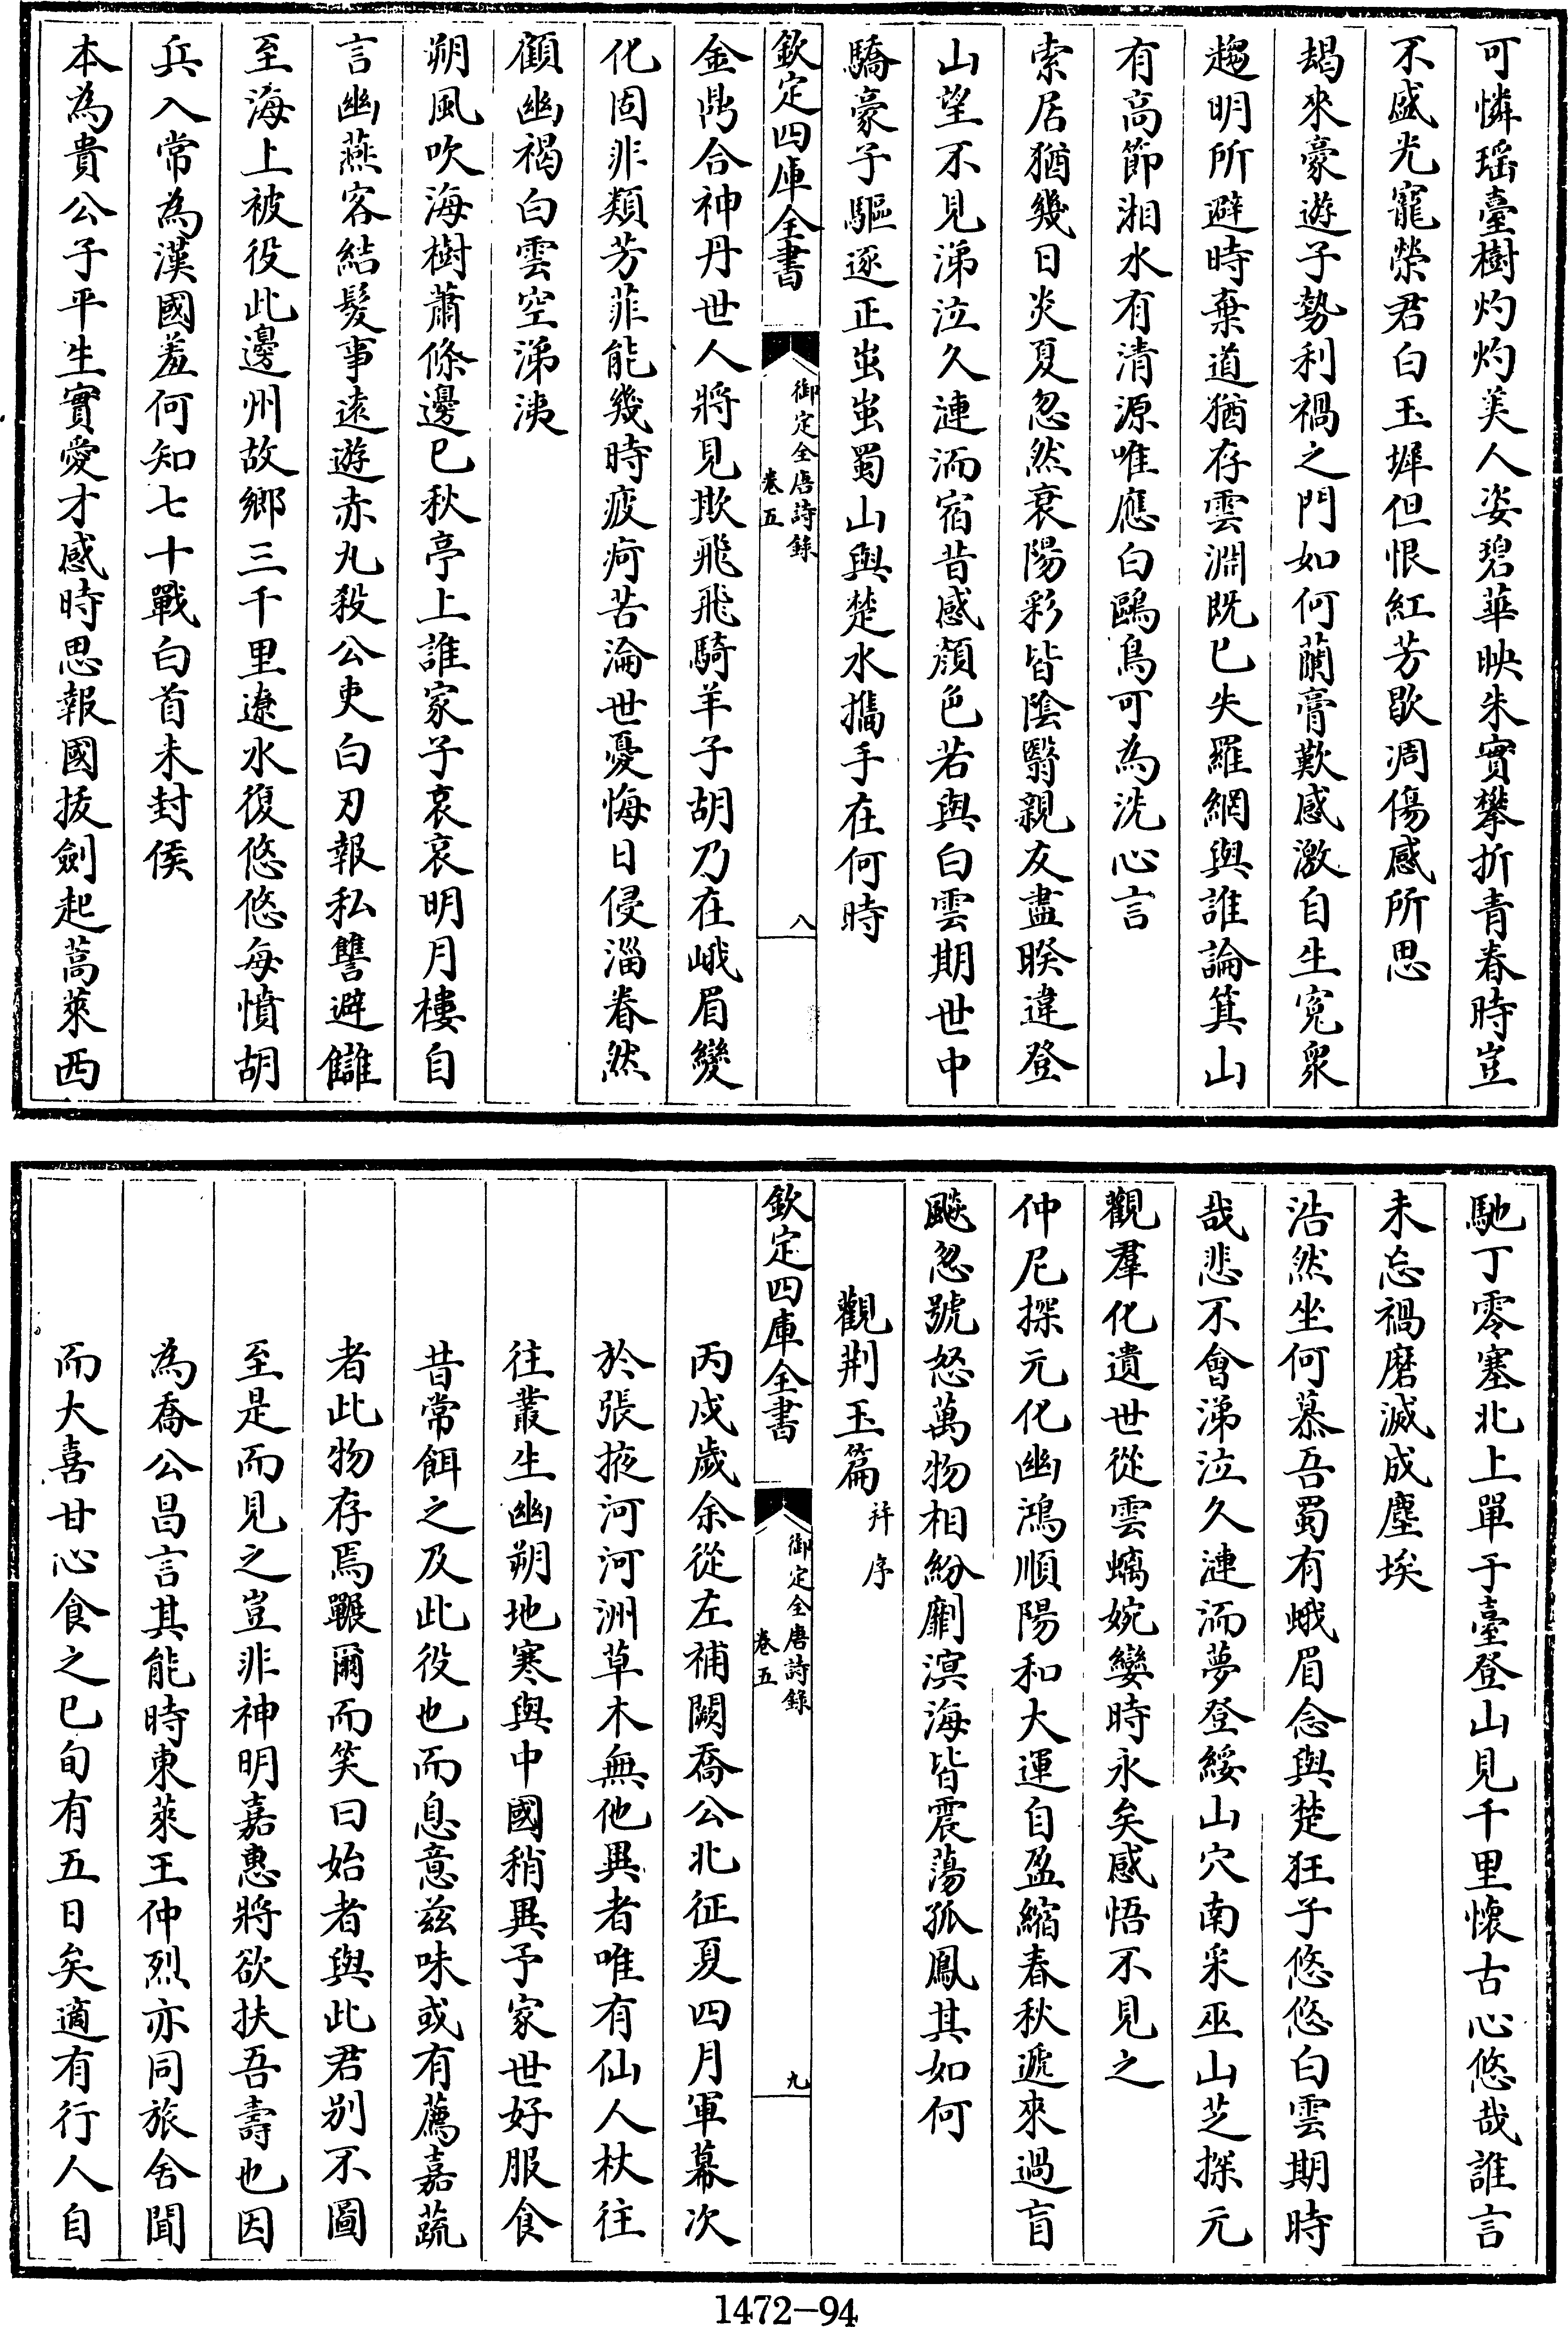 可憐瑶臺樹灼灼美人姿碧華映朱實攀折青春時豈
不盛光寵榮君白玉墀但恨紅芳歇凋傷感所思
朅來豪遊子勢利禍之門如何蘭膏歎感激自生寃衆
趨明所避時棄道猶存雲淵既已失羅網與誰論箕山
有高節湘水有清源唯應白鷗鳥可為洗心言
索居猶幾日炎夏忽然衰陽彩皆陰翳親友盡睽違登
山望不見涕泣久漣洏宿昔感顏色若與白雲期世中
驕豪子驅逐正蚩蚩蜀山與楚水攜手在何時
欽定四庫全書
御定全唐詩錄
卷五
八
金鼎合神丹世人將見欺飛飛騎羊子胡乃在峨眉變
化固非類芳菲能幾時疲疴苦淪世憂悔日侵淄眷然
顧幽褐白雲空涕洟
朔風吹海樹蕭條邊已秋亭上誰家子哀哀明月樓自
言幽燕客結髮事遠遊赤丸殺公吏白刃報私讐避讎
至海上被役此邊州故鄉三千里遼水復悠悠每憤胡
兵入常為漢國羞何知七十戰白首未封侯
本為貴公子平生實愛才感時思報國拔劍起蒿萊西
馳丁零塞北上單于臺登山見千里懷古心悠哉誰言
未忘禍磨滅成塵埃
浩然坐何慕吾蜀有峨眉念與楚狂子悠悠白雲期時
哉悲不會涕泣久漣洏夢登綏山穴南采巫山芝探元
觀羣化遺世從雲螭婉孌時永矣感悟不見之
仲尼探元化幽鴻順陽和大運自盈縮春秋遞來過盲
飈忽號怒萬物相紛劘溟海皆震蕩孤鳳其如何
觀荆玉篇并序
欽定四庫全書
御定全唐詩錄
卷五
九
丙戌歲余從左補闕喬公北征夏四月軍幕次
於張掖河河洲草木無他異者唯有仙人杖往
往叢生幽朔地寒與中國稍異予家世好服食
昔常餌之及此役也而息意兹味或有薦嘉蔬
者此物存焉囅爾而笑曰始者與此君別不圖
至是而見之豈非神明嘉惠將欲扶吾壽也因
為喬公昌言其能時東萊王仲烈亦同旅舍聞
而大喜甘心食之已旬有五日矣適有行人自
1472-94